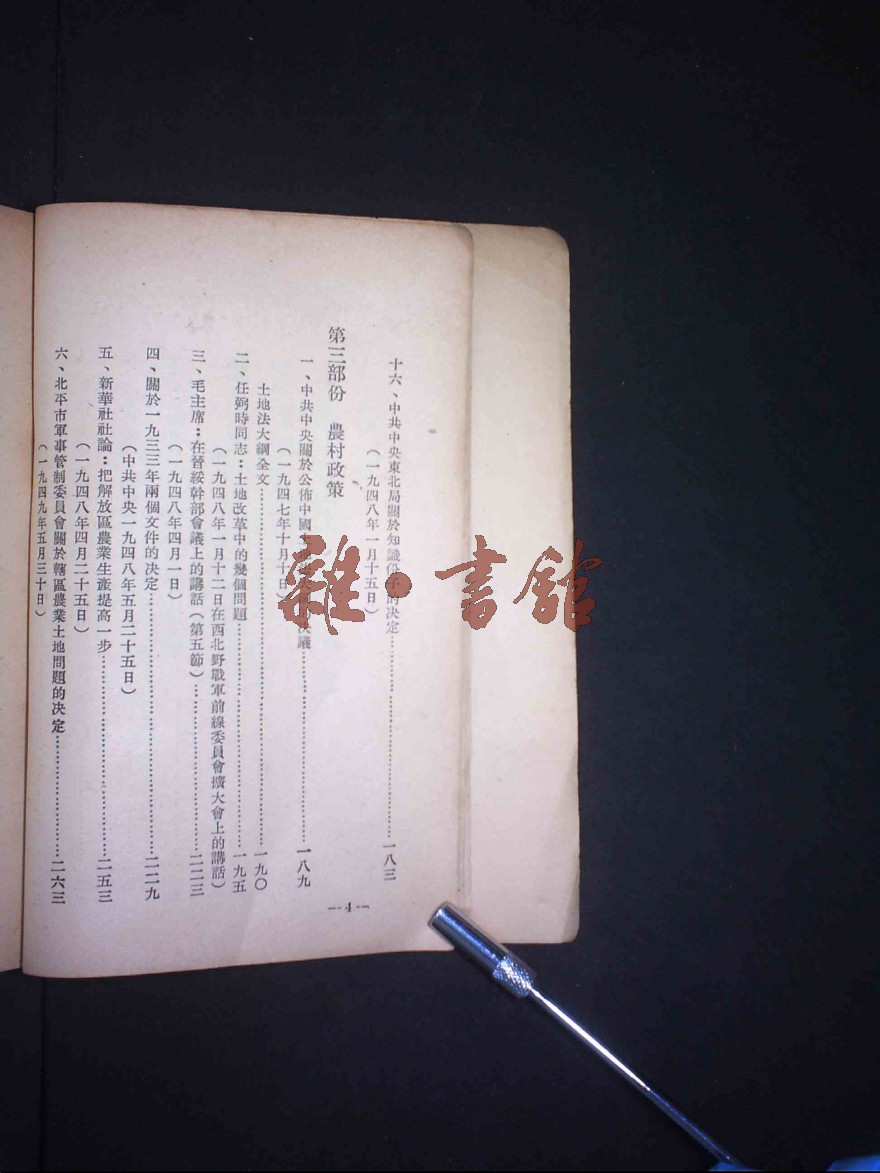 十六、中共中央東北局關於知識份子的決定……一八三
（一九四八年一月十五日）
第三部份　農村政策
一、中共中央關於公佈中國土地法大綱決議……一八九
（一九四七年十月十日）
土地法大綱全文……一九〇
二、任弼時同志：土地改革中的幾個問題……一九五
（一九四八年一月十二日在西北野戰軍前線委員會擴大會上的講話）
三、毛主席：在晉綏幹部會議上的講話（第五節）……二二三
（一九四八年四月一日）
四、關於一九三三年兩個文件的決定……二二九
（中共中央一九四八年五月二十五日）
五、新華社社論：把解放區農業生產提高一步……二五三
（一九四八年四月二十五日）
六、北平市軍事管制委員會關於轄區農業土地問題的決定……二六三
（一九四九年五月三十日）
—4—
雜·書館